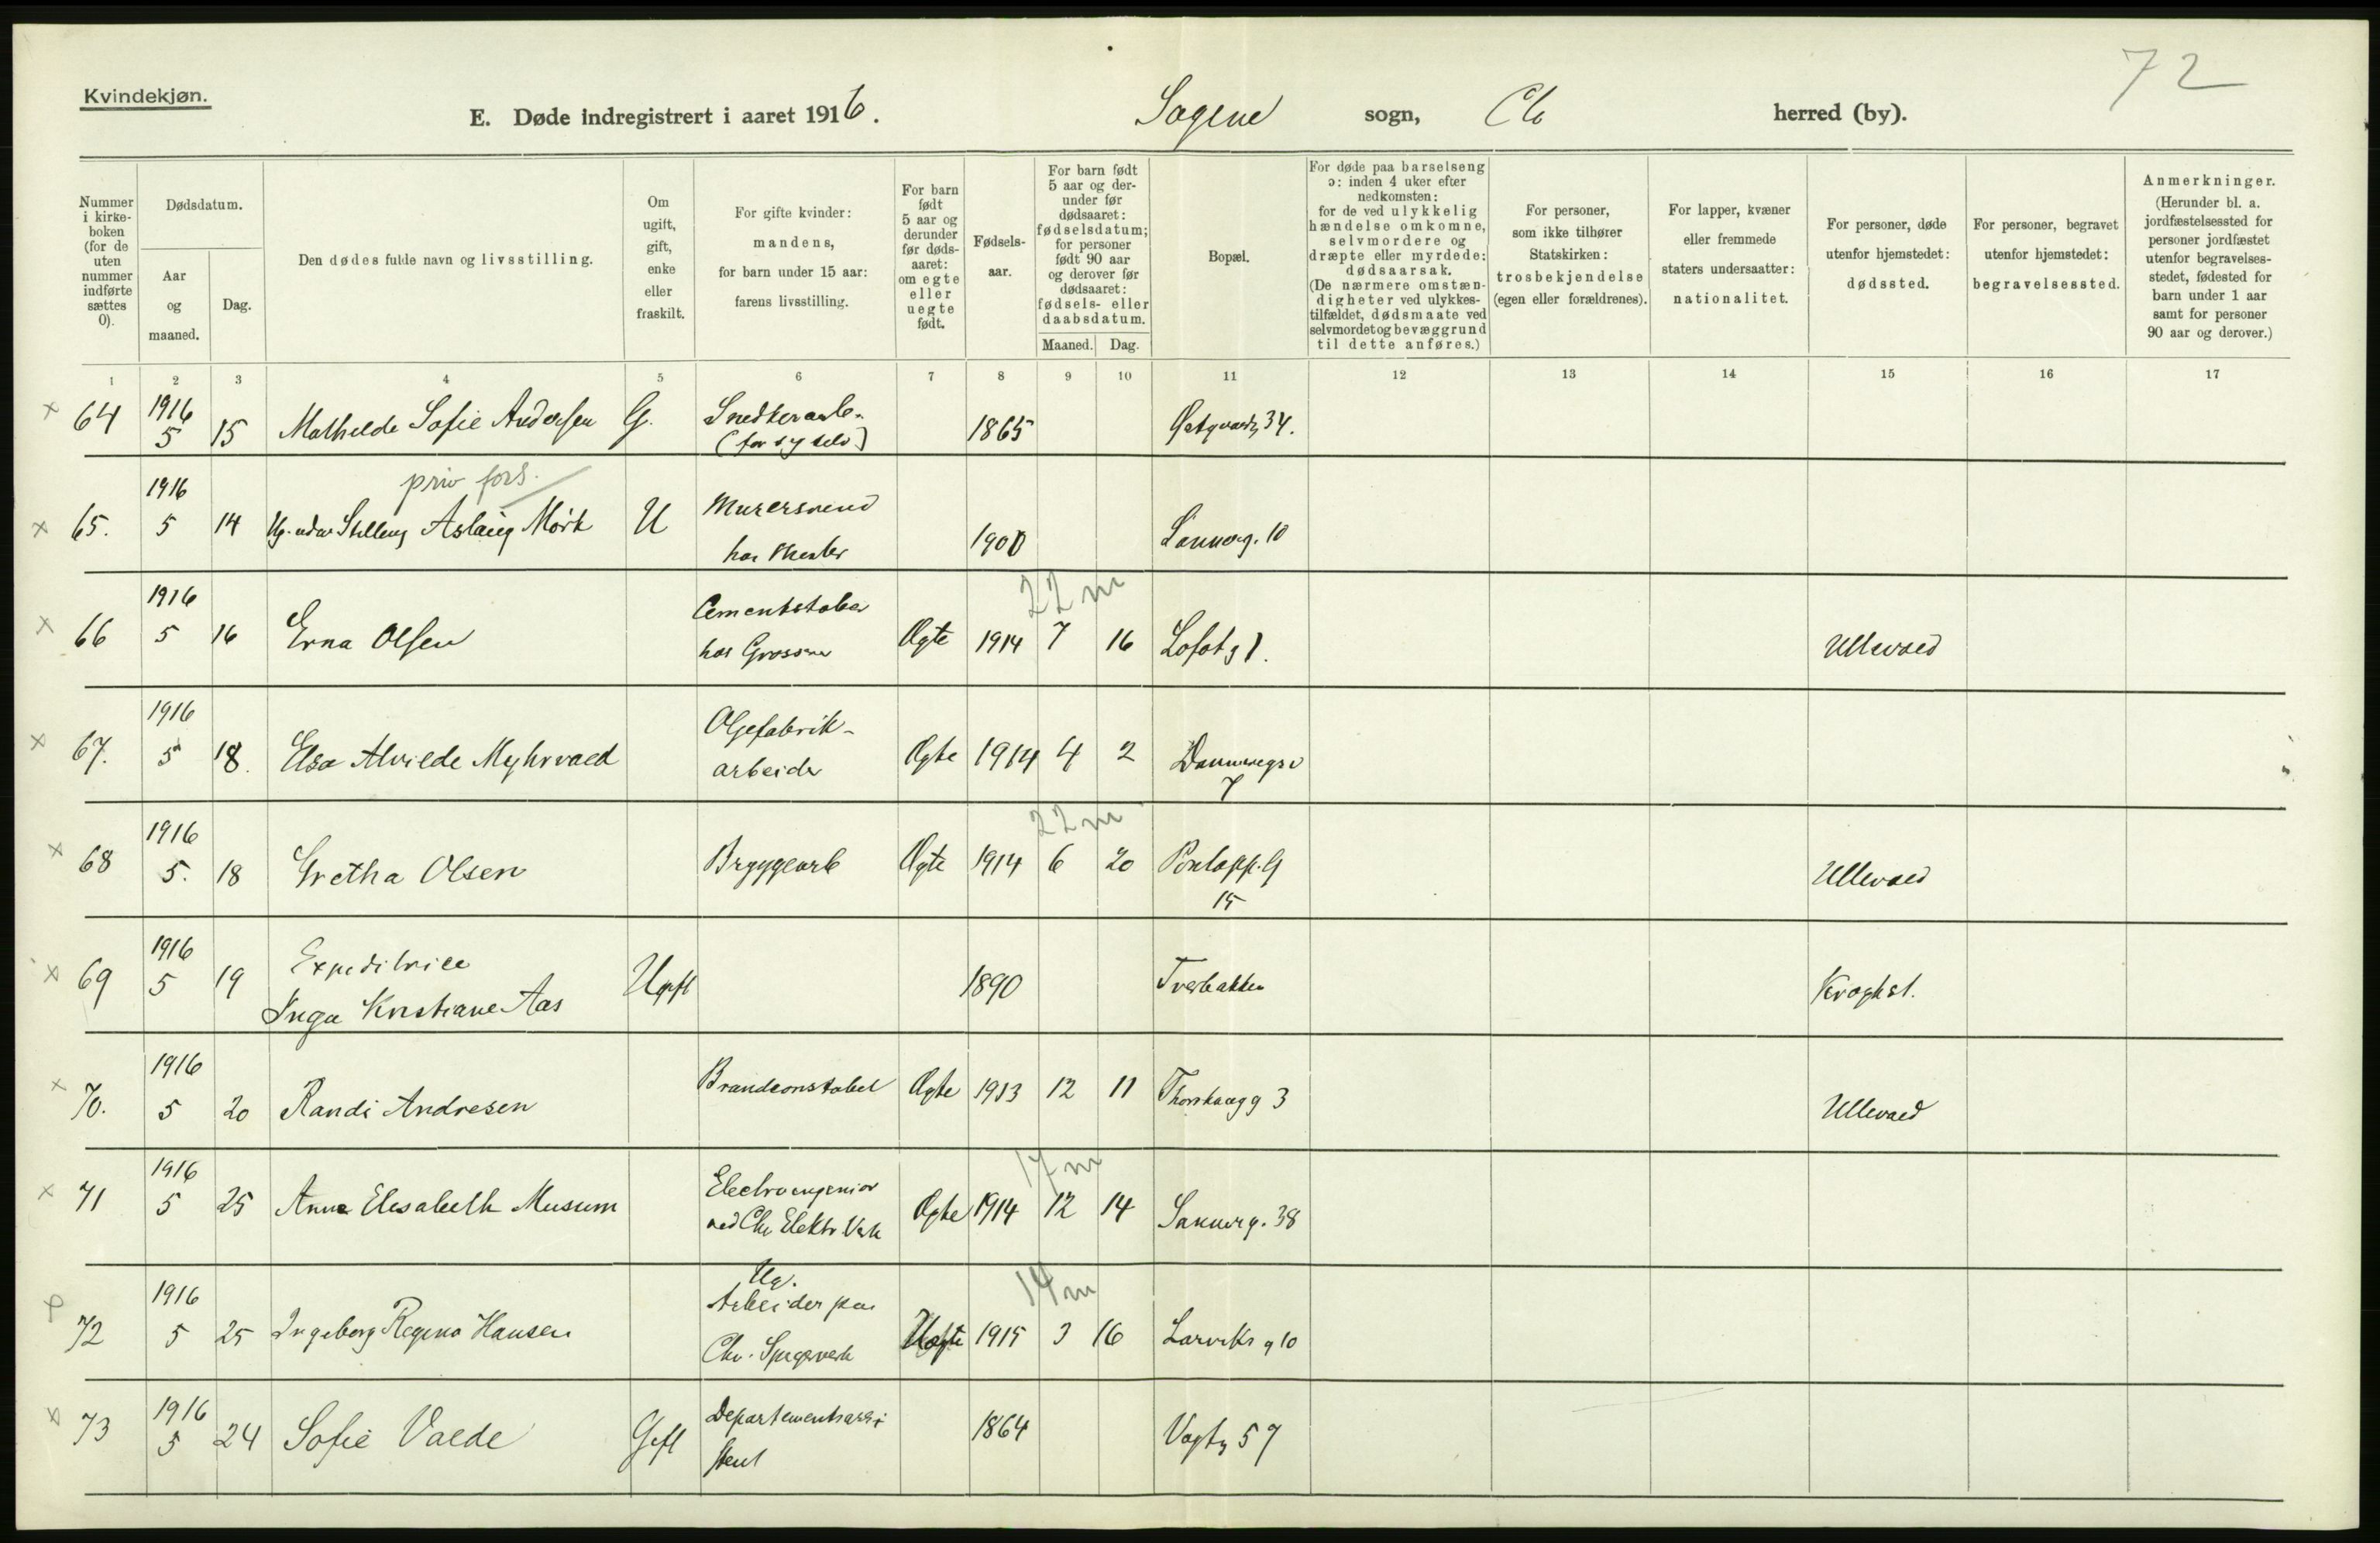 72
Kvindekjøn.
E. Døde indregistrert i aaret 1916. Sagene sogn, herred (by).
Nummer i kirkeboken (for de uten nummer indførte sættes 0).
Dødsdatum.
Aar og maaned.
Dag.
Den dødes fulde navn og livsstilling.
Om ugift, gift, enke eller fraskilt.
For gifte kvinder: mandens, for barn under 15 aar: farens livsstilling.
For barn født 5 aar og derunder før dødsaaret: om egte eller uegte født.
Fødselsaar.
For barn født 5 aar og derunder før dødsaaret: fødselsdatum; for personer født 90 aar og derover før dødsaaret: fødsels- eller daabsdatum.
Maaned. Dag.
Bopæl.
For døde paa barselseng ɔ: inden 4 uker efter nedkomsten: for de ved ulykkelig hændelse omkomne, selvmordere og dræpte eller myrdede: dødsaarsak. (De nærmere omstændigheter ved ulykkestilfældet, dødsmaate ved selvmordet og bevæggrund til dette anføres.)
For personer, som ikke tilhører Statskirken: trosbekjendelse (egen eller forældrenes).
For lapper, kvæner eller fremmede staters undersaatter: nationalitet.
For personer, døde utenfor hjemstedet: dødssted.
For personer, begravet utenfor hjemstedet: begravelsessted.
Anmerkninger. (Herunder bl. a. jordfæstelsessted for personer jordfæstet utenfor begravelsesstedet, fødested for barn under 1 aar samt for personer 90 aar og derover.)
1 2 3 4 5 6 7 8 9 10 11 12 13 14 15 16 17
× 64 1916 5 15 Mathilde Sofie Andersen G. Snedkerarb. 1865 34.
priv fors.
× 65. 1916 5 14 Aslaug Mörk U Murersvend hos 1900 Sannerg. 10
22 m
× 66 1916 5 16 Erna Olsen Cementstøber hos Ægte 1914 7 16 Lofotg 1. Ullevaal
× 67. 1916 5 18. Elsa Alvilde Myhrvold Oljefabrikarbeider Ægte 1914 4 2 Dannevigsv 7
22 m
× 68 1916 5. 18 Gretha Olsen Bryggearb Ægte 1914 6 20 15 Ullevaal
× 69 1916 5 19 Expeditrice Inga Kristiane Aas Ugift 1890 Tverbakken Kroghst.
× 70. 1916 5 20 Randi Andresen Brandconstabel Ægte 1913 12 11 3 Ullevaal
17 m
× 71 1916 5 25 Anna Elisabeth Musum Electroingeniør ved Chr Elektr. Verk Ægte 1914 12 14 Sannerg. 38
14 m
72 1916 5 25 Ingeborg Regina Hansen Ug. Arbeider paa Chr. Spigerverk Uægte 1915 3 16 Larviksg 10
× 73 1916 5 24 Sofie Volde Gift Departementsassistent 1864 Vogtsg 57